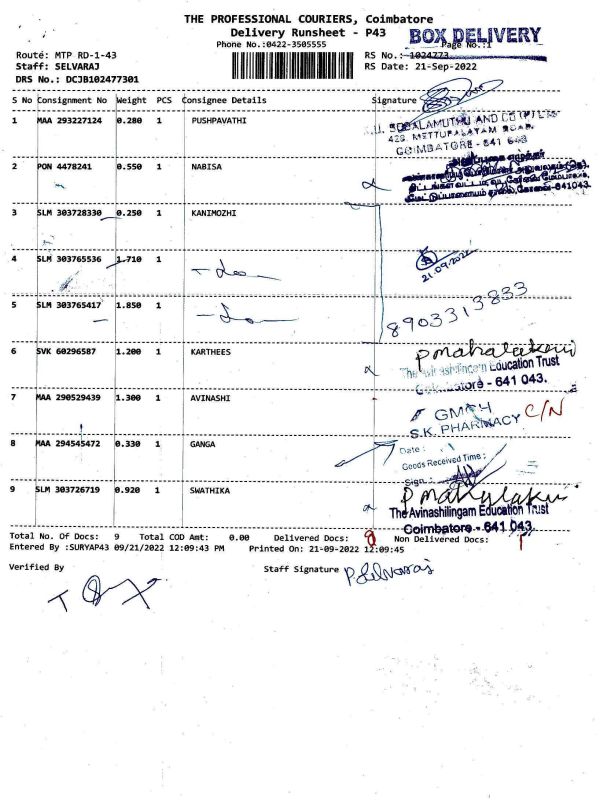 THE PROFESSIONAL COURIERS, Coimbatore
Delivery Runsheet - P43
BOX DELIVERY
Phone No.:0422-3505555
Page No.:1
Route: MTP RD-1-43
RS No.: 1024773
Staff: SELVARAJ
RS Date: 21-Sep-2022
DRS No.: DCJB102477301
S No Consignment No Weight PCS Consignee Details Signature
1 MAA 293227124 0.280 1 PUSHPAVATHI
AND
COIMBATORE - 641
2 PON 4478241 0.550 1 NABISA
3 SLM 303728330 0.250 1 KANIMOZHI
4 SLM 303765536 1.710 1
21.09.2022
5 SLM 303765417 1.850 1
8903313833
6 SVK 60296587 1.200 1 KARTHEES
The Avinashilingam Education Trust
Coimbatore - 641 043.
7 MAA 290529439 1.300 1 AVINASHI
C/N
S.K. PHARMACY
8 MAA 294545472 0.330 1 GANGA
Date :
Goods Received Time :
Sign. :
9 SLM 303726719 0.920 1 SWATHIKA
The Avinashilingam Education Trust
Coimbatore - 641 043.
Total No. Of Docs: 9 Total COD Amt: 0.00 Delivered Docs: Non Delivered Docs:
Entered By :SURYAP43 09/21/2022 12:09:43 PM Printed On: 21-09-2022 12:09:45
Verified By
Staff Signature P. Selvaraj